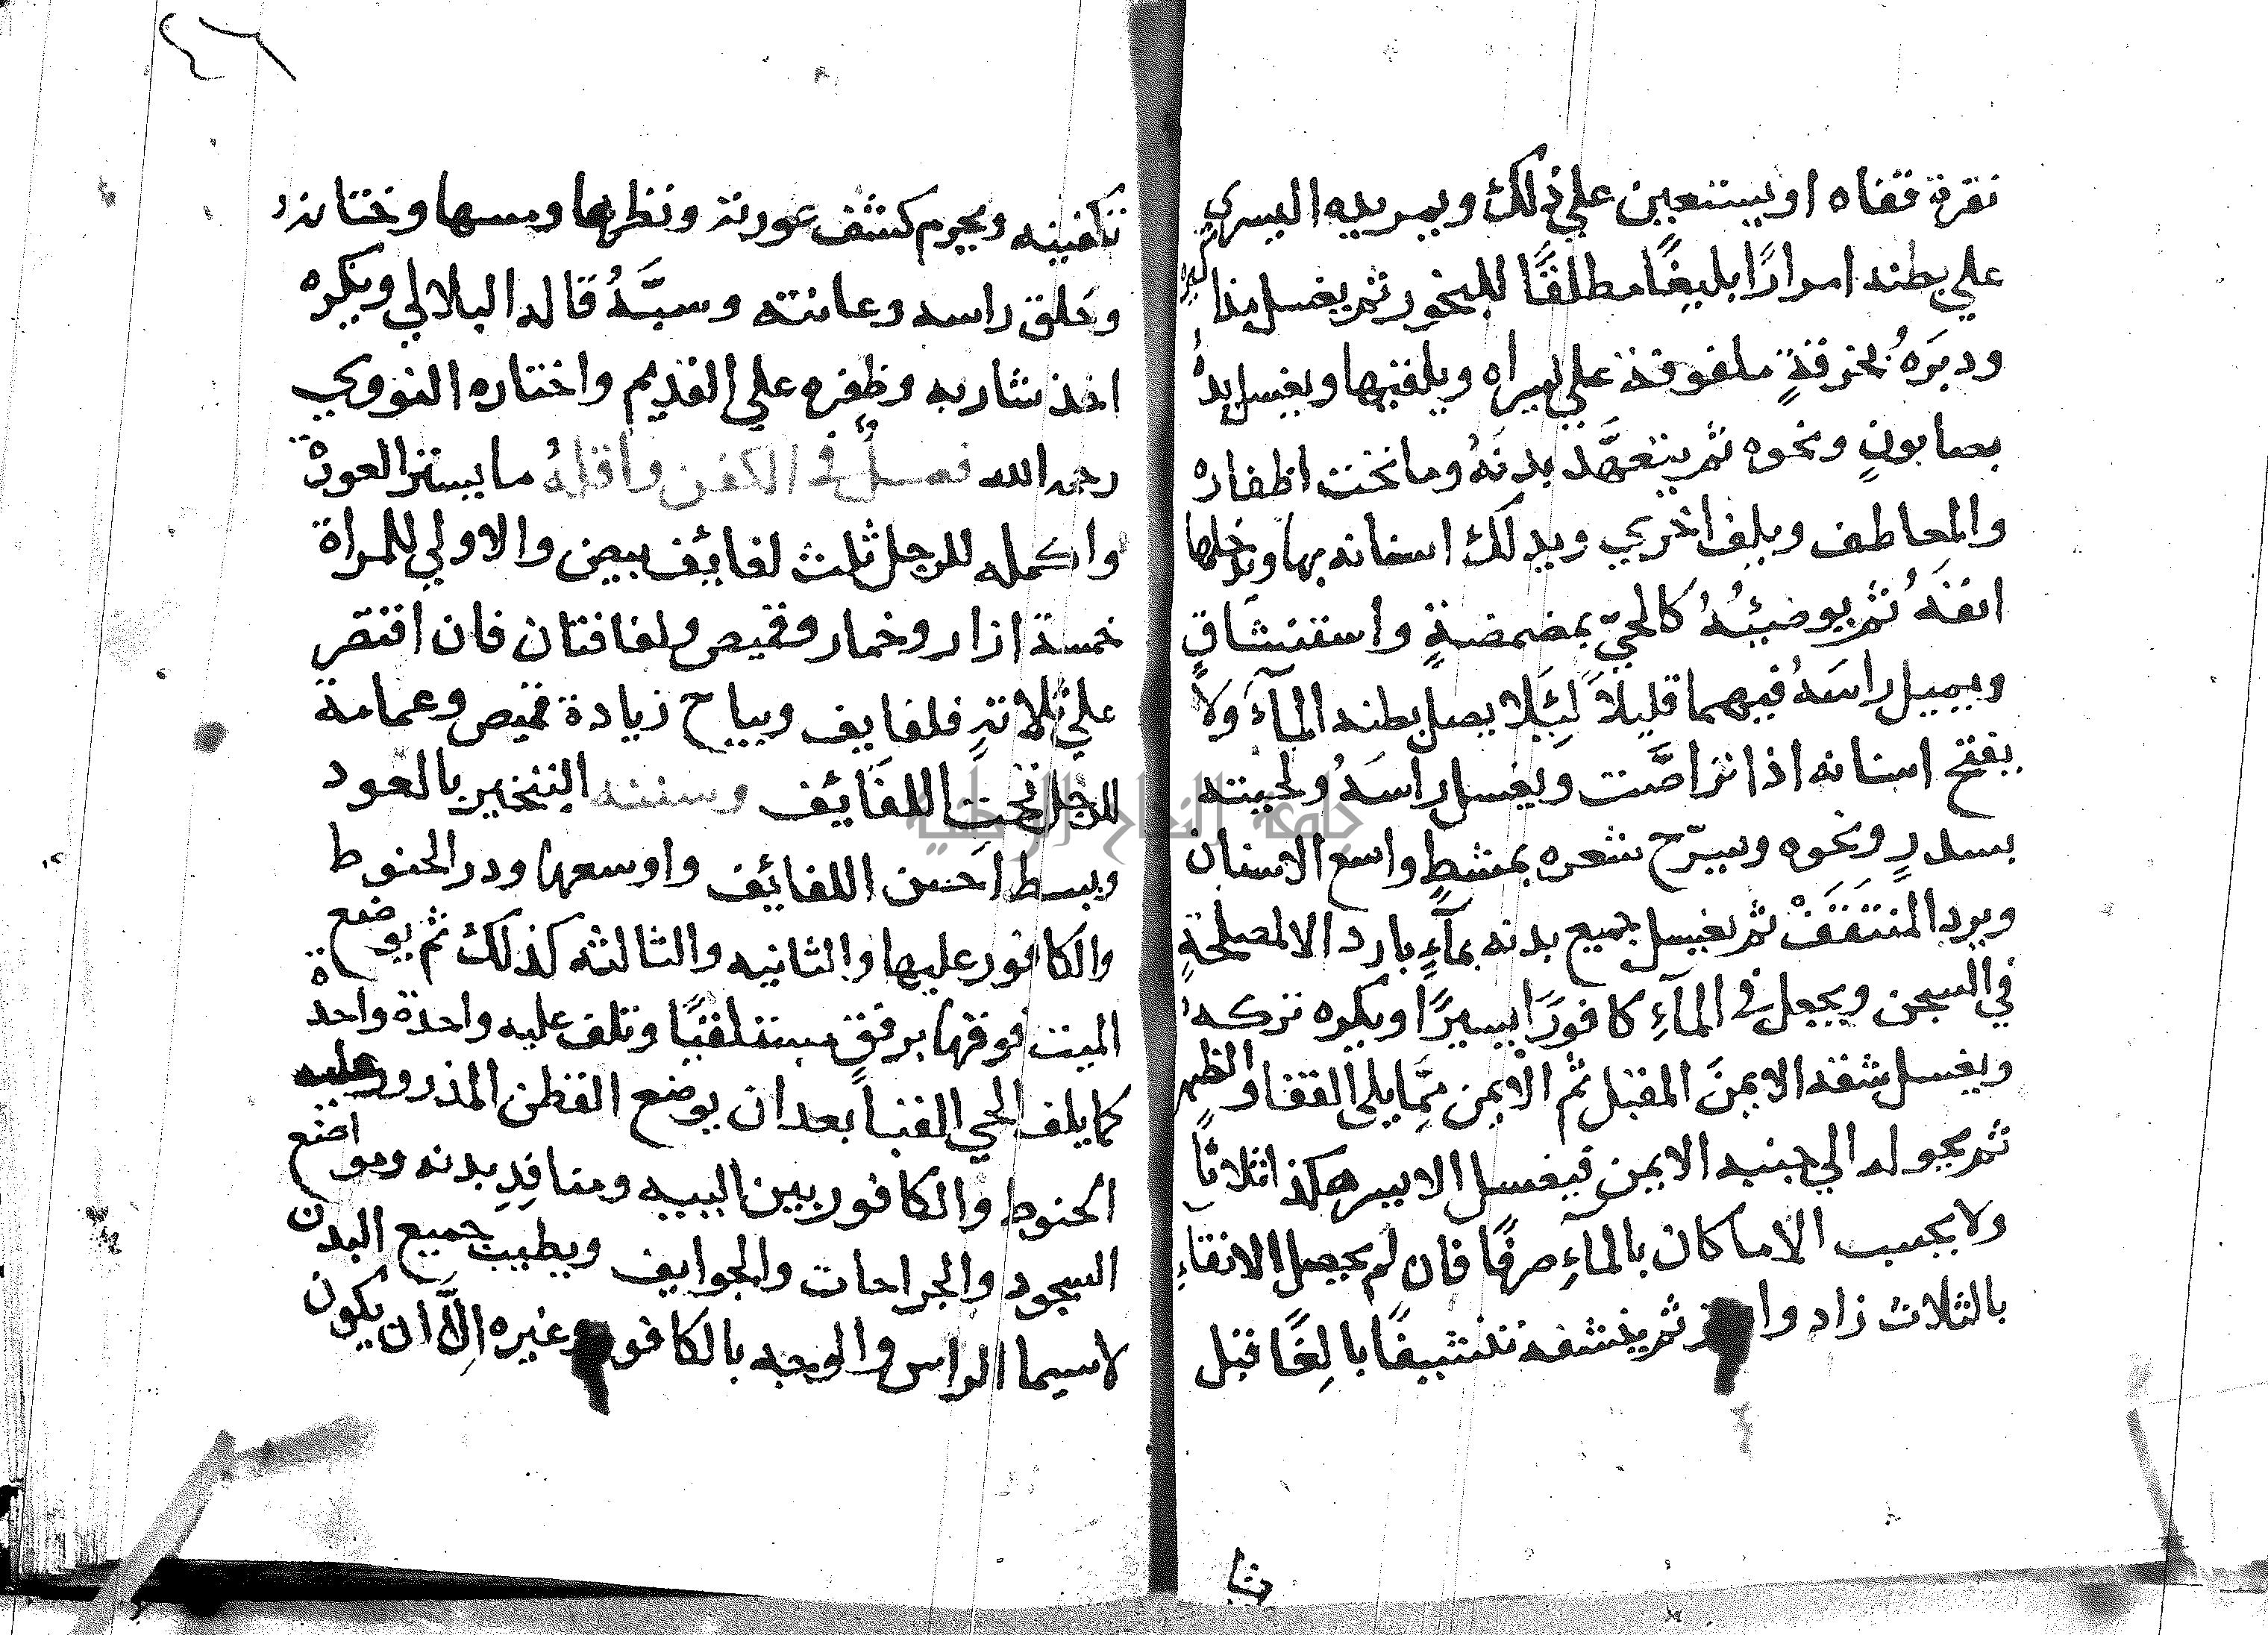 نقرة قفاه او يستعين علي ذلك ويمر يده اليسري
علي بطنه امرارًا بليغًا مطلقًا للبخور ثم يغسل مذاكيره
ودبرَهُ بخرقةٍ ملفوفة علي يسراه ويلقيها ويغسل يدهُ
بصابونٍ ونحوه ثم يتعهَّد بدنَهُ وما تحت اظفاره
والمعاطف ويلف اخري ويدلك اسنانه بها ويدخلها
انفَهُ ثم يوضيئُهُ كالحيّ بمضمضةٍ واستنشاقٍ
ويميل راسَهُ فيهما قليلاً لِئَلا يصل بطنه المآءُ ولا
يفتح اسنانه اذا تراصَّت ويغسل راسَهُ ولحيته
بسدرٍ ونحوه ويسرّح شعره بمشطٍ واسع الاسنان
ويرد المنتَتَفْ ثم يغسل جميع بدنه بمآءٍ بارد الا لمصلحةٍ
في السجن ويجعل في المآءِ كافورًا يسيرًا ويكره تركه
ويغسل شقه الايمنَ المقبل ثم الايمن مِمَّا يلي القفا والظهر
ثم يحوله الي جنبه الايمن فيغسل الايسر هكذا ثلاثًا
ولا يحسب الا ما كان بالمآءِ صرفًا فان لم يحصل الانقاءِ
بالثلاث زاد ثم ينشفه تنشيفًا بالِغًا قبل
تكفينه ويحرم كشف عورته ونظرها ومسها وختانه
وحلق راسه وعانته وسبَّهُ قاله البلالي ويكره
اخذ شاربه وظفره علي القديم واختاره النووي
رحمه الله فصلٌ في الكفن واقلهُ ما يستر العورة
واكمله للرجل ثلث لفائف بيض والاولي للمراة
خمسة ازار وخمار وقميص ولفافتان فان اقتصر
علي ثلاثةٍ فلفايف ويباح زيادة قميص وعمامة
للرجل تحت اللفائف وسننه التبخير بالعود
وبسط احسن اللفائف واوسعها ودر الحنوط
والكافور عليها والثانيه والثالثه كذلك ثم يوضع
الميت فوقها برفقٍ مستلقيًا وتلف عليه واحدة واحدة
كما يلف الحي القبا بعد ان يوضع القطن المذرور عليه
الحنوط والكافور بين اليیه ومنافذِ بدنه ومواضع
السجود والجراحات والجوايف ويطيب جميع البدن
لاسيما الراس والوجه بالكافور وغيره اِلَّا ان يكون
تنا
٤٦
جامعة النجاح الوطنية